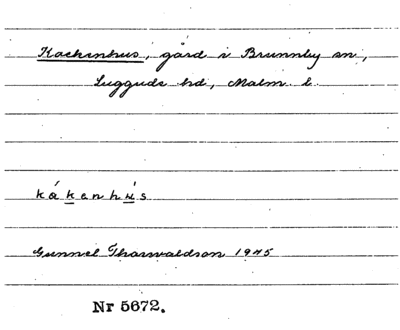 Kockenhus, gård i Brunnby sn,
Luggude hd, Malm. l.
kǻkenhú̱s
Gunnel Thorwaldson 1945
Nr 5672.